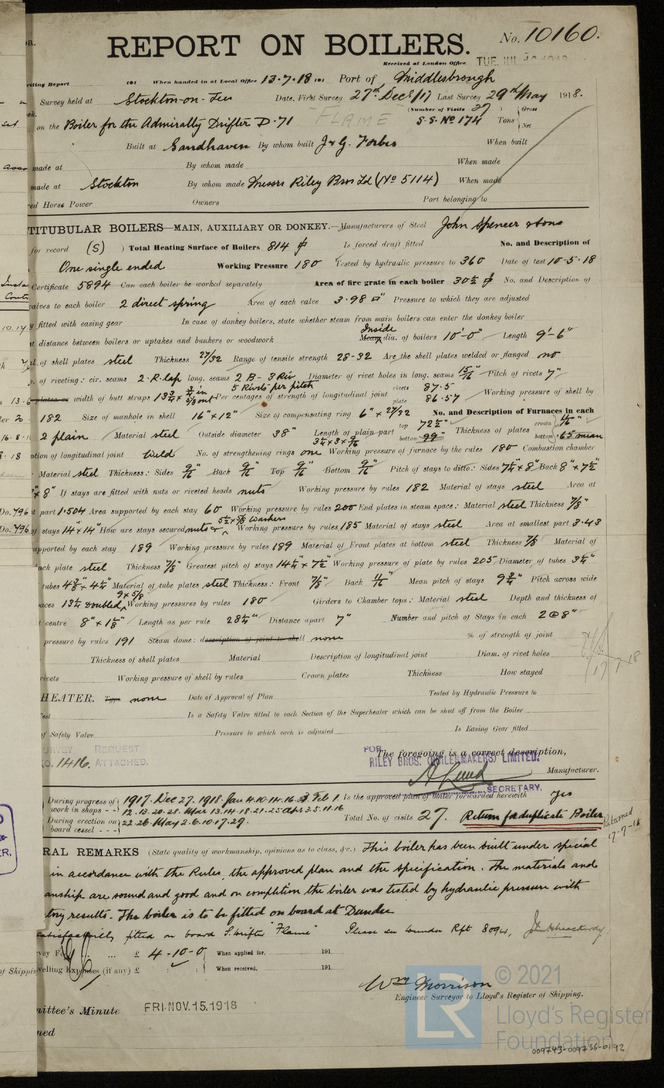 REPORT ON BOILERS.
No. 10160.
Received at London Office TUE. JUL 30 1918
writing Report 191 When handed in at Local Office 13-7-18 191 Port of Middlesbrough
Survey held at Stockton-on-Tees Date, First Survey 27th Dec 1917 Last Survey 29th May 1918.
(Number of Visits 27)
on the Boiler for the Admiralty Drifter D.71 FLAME S.S. No 174 Tons Gross Net
Built at Sandhaven By whom built J & G. Forbes When built
made at By whom made When made
made at Stockton By whom made Messrs Riley Bros Ld (No 5114) When made
ed Horse Power Owners Port belonging to
TITUBULAR BOILERS—MAIN, AUXILIARY OR DONKEY.—Manufacturers of Steel John Spencer & Sons
for record (S) Total Heating Surface of Boilers 814 Is forced draft fitted No. and Description of
One single ended Working Pressure 180 Tested by hydraulic pressure to 360 Date of test 10-5-18
Certificate 5894 Can each boiler be worked separately Area of fire grate in each boiler 30½ No. and Description of
valves to each boiler 2 direct spring Area of each valve 3.98 □" Pressure to which they are adjusted
fitted with easing gear In case of donkey boilers, state whether steam from main boilers can enter the donkey boiler
st distance between boilers or uptakes and bunkers or woodwork Inside dia. of boilers 10'-0" Length 9'-6"
of shell plates steel Thickness 27/32 Range of tensile strength 28-32 Are the shell plates welded or flanged no
of riveting: cir. seams 2.R.lap long. seams 2 B-3 Riv Diameter of rivet holes in long. seams 15/16 Pitch of rivets 7"
5 Rivets per pitch
width of butt straps Per centages of strength of longitudinal joint rivets 87.5 plate 86.57 Working pressure of shell by
182 Size of manhole in shell 16" × 12" Size of compensating ring 6" × 27/32 No. and Description of Furnaces in each
2 plain Material steel Outside diameter 38" Length of plain part top 72½" bottom 99" Thickness of plates crown bottom
ption of longitudinal joint weld No. of strengthening rings one Working pressure of furnace by the rules 180 Combustion chamber
Material steel Thickness: Sides 9/16 Back 9/16 Top 9/16 Bottom 9/16 Pitch of stays to ditto: Sides 7½ × 8" Back 8" × 7½
× 8" If stays are fitted with nuts or riveted heads nuts Working pressure by rules 182 Material of stays steel Area at
part 1.504 Area supported by each stay 60 Working pressure by rules 200 End plates in steam space: Material steel Thickness 7/8"
of stays 14" × 14" How are stays secured nuts & Washers Working pressure by rules 185 Material of stays steel Area at smallest part 3.43
upported by each stay 189 Working pressure by rules 189 Material of Front plates at bottom steel Thickness 7/8 Material of
ack plate steel Thickness 7/8 Greatest pitch of stays 14½ × 7½ Working pressure of plate by rules 205 Diameter of tubes 3¼"
tubes Material of tube plates steel Thickness: Front 7/8" Back Mean pitch of stays Pitch across wide
aces 13½ doubled 9 × 5/8 Working pressures by rules 180 Girders to Chamber tops: Material steel Depth and thickness of
centre 8" × 1⅛" Length as per rule 28½" Distance apart 7" Number and pitch of Stays in each 2 @ 8"
pressure by rules 191 Steam dome: description of joint to shell none % of strength of joint
Thickness of shell plates Material Description of longitudinal joint Diam. of rivet holes
rivets Working pressure of shell by rules Crown plates Thickness How stayed
HEATER. Type none Date of Approval of Plan Tested by Hydraulic Pressure to
Is a Safety Valve fitted to each Section of the Superheater which can be shut off from the Boiler
of Safety Valve Pressure to which each is adjusted Is Easing Gear fitted
SURVEY REQUEST
No. 1416. ATTACHED.
The foregoing is a correct description,
FOR RILEY BROS. (BOILERMAKERS) LIMITED.
Manufacturer.
SECRETARY.
During progress of work in shops -- 1917. Dec 27. 1918. Jan 4.10.14.16. Feb 1 Is the approved plan of boiler forwarded herewith yes
12.13.20.28. Mar 13.14.18.21.25. Apr
During erection on board vessel --- 22.26. May 2.6.10.17.29. Total No. of visits 27. Return for duplicate Boiler
Returned
RAL REMARKS (State quality of workmanship, opinions as to class, &c.) This boiler has been built under special
in accordance with the Rules, the approved plan and the specification. The materials and
anship are sound and good and on completion the boiler was tested by hydraulic pressure with
tory results. The boiler is to be fitted on board at Dundee
satisfactorily fitted on board S. Drifter "Flame" Please see Dundee Rpt 8094,
vey Fee ... £ 4-10-0 When applied for, 191
velling Expenses (if any) £ When received, 191
Wm Morrison
Engineer Surveyor to Lloyd's Register of Shipping.
mittee's Minute FRI. NOV. 15. 1918
ned
© 2021
Lloyd's Register
Foundation
LR
009743-009755-0192